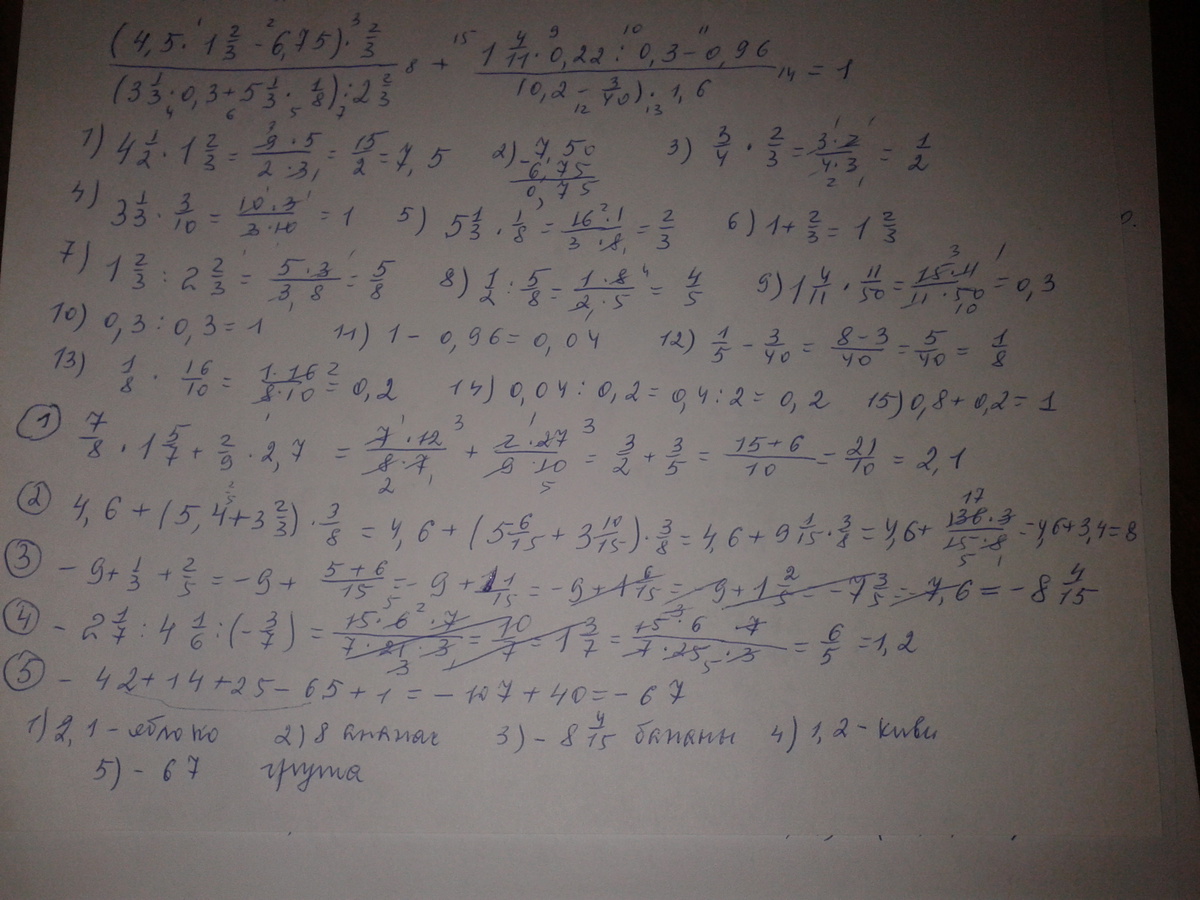 (4,5 · 1 2/3 - 6,75) · 2/3 / (3 1/3 · 0,3 + 5 1/3 · 1/8) : 2 2/3 + 1 4/11 · 0,22 : 0,3 - 0,96 / (0,2 - 3/40) · 1,6 = 1
1) 4 1/2 · 1 2/3 = 9·5/2·3 = 15/2 = 7,5 2) 7,50 - 6,75 0,75 3) 3/4 · 2/3 = 3·2/4·3 = 1/2
4) 3 1/3 · 3/10 = 10·3/3·10 = 1 5) 5 1/3 · 1/8 = 16·1/3·8 = 2/3 6) 1 + 2/3 = 1 2/3
7) 1 2/3 : 2 2/3 = 5·3/3·8 = 5/8 8) 1/2 : 5/8 = 1·8/2·5 = 4/5 9) 1 4/11 · 11/50 = 15·11/11·50 = 0,3
10) 0,3 : 0,3 = 1 11) 1 - 0,96 = 0,04 12) 1/5 - 3/40 = 8-3/40 = 5/40 = 1/8
13) 1/8 · 16/10 = 1·16/8·10 = 0,2 14) 0,04 : 0,2 = 0,4 : 2 = 0,2 15) 0,8 + 0,2 = 1
1 7/8 · 1 5/7 + 2/9 · 2,7 = 7·12/8·7 + 2·27/9·10 = 3/2 + 3/5 = 15+6/10 = 21/10 = 2,1
2 4,6 + (5,4 + 3 2/3) · 3/8 = 4,6 + (5 6/15 + 3 10/15) · 3/8 = 4,6 + 9 1/15 · 3/8 = 4,6 + 136·3/15·8 = 4,6 + 3,4 = 8
3 - 9 + 1/3 + 2/5 = -9 + 5+6/15 = -9 + 11/15 = -9 + 1 6/15 = -9 + 1 2/5 = -7 3/5 = -7,6 = -8 4/15
4 - 2 1/7 : 4 1/6 : (- 3/7) = 15·6·7/7·21·3 = 10/7 = 1 3/7 = 15·6·7/7·25·3 = 6/5 = 1,2
5 - 42 + 14 + 25 - 65 + 1 = - 107 + 40 = - 67
1) 2,1 - яблоко 2) 8 ананас 3) - 8 4/15 бананы 4) 1,2 - киви
5) - 67 груша